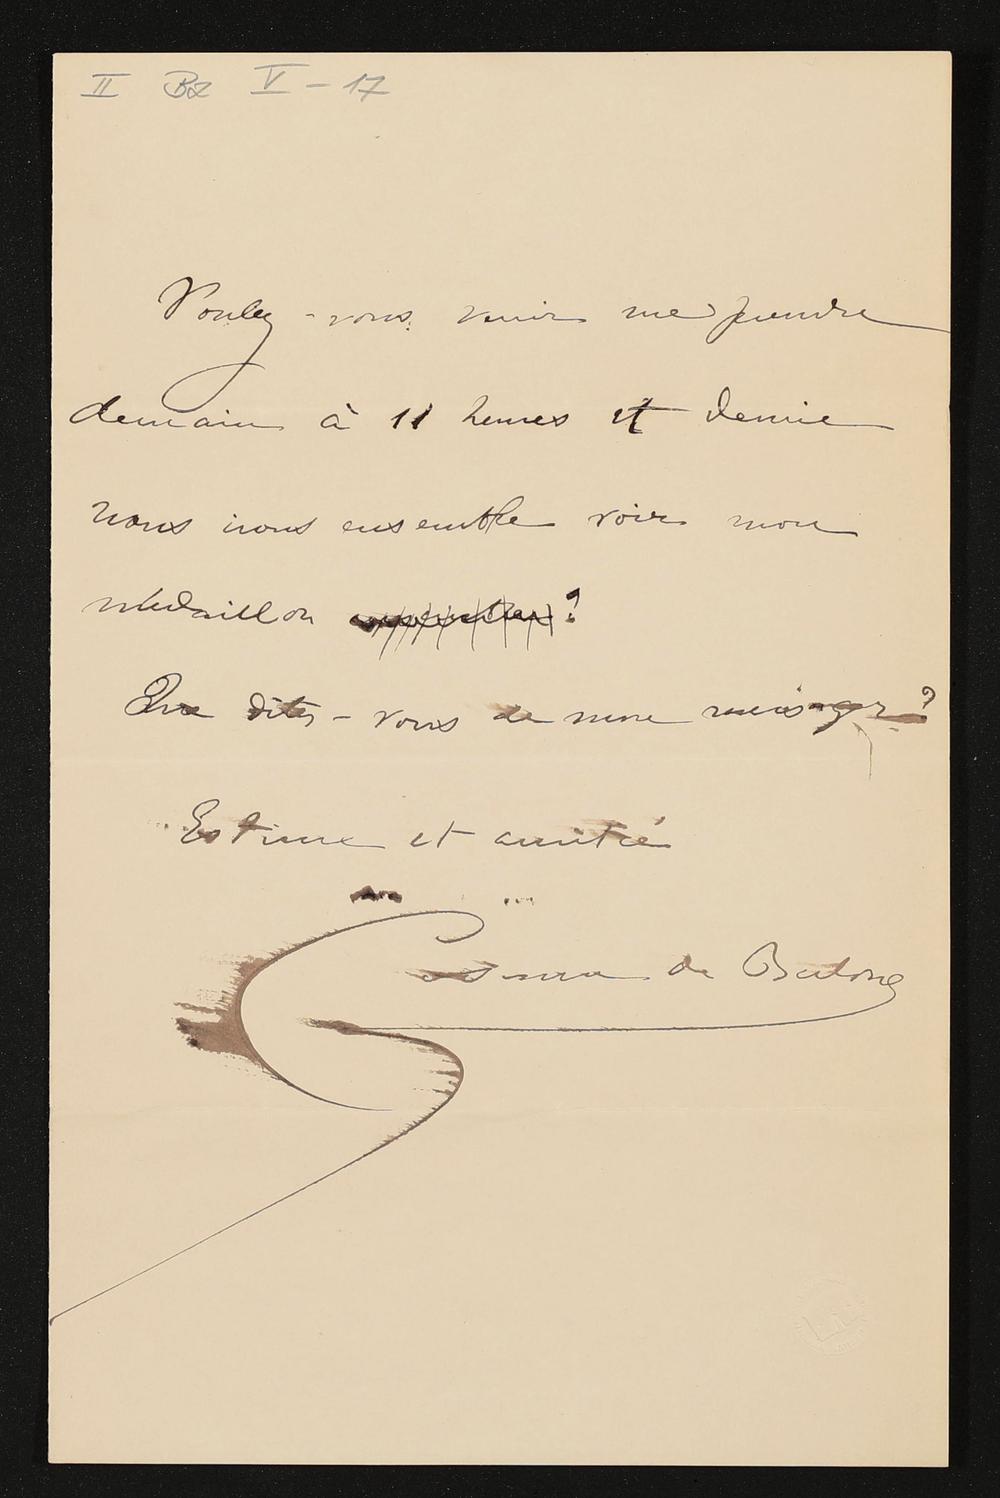 II Bz V - 17
Voulez-vous venir me prendre
demain à 11 heures et demie
nous irons ensemble voir mon
médaillon ?
Que dites-vous de mon messager ?
Estime et amitié
Cosima de Bulow